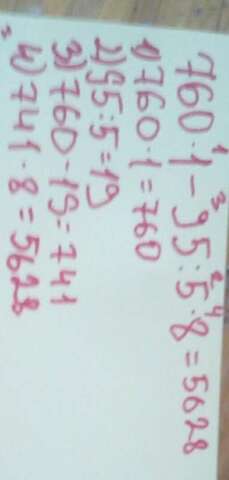 1 3 2 4
760 · 1 - 95 : 5 · 8 = 5628
1) 760 · 1 = 760
2) 95 : 5 = 19
3) 760 - 19 = 741
4) 741 · 8 = 5628